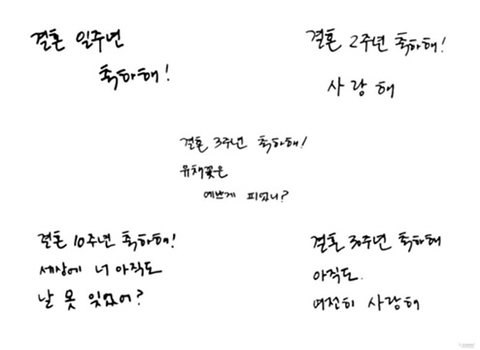 결혼 일주년
축하해!
결혼 2주년 축하해!
사랑해
결혼 3주년 축하해!
유채꽃은
예쁘게 피었니?
결혼 10주년 축하해!
세상에 너 아직도
날 못 잊었어?
결혼 30주년 축하해
아직도
여전히 사랑해